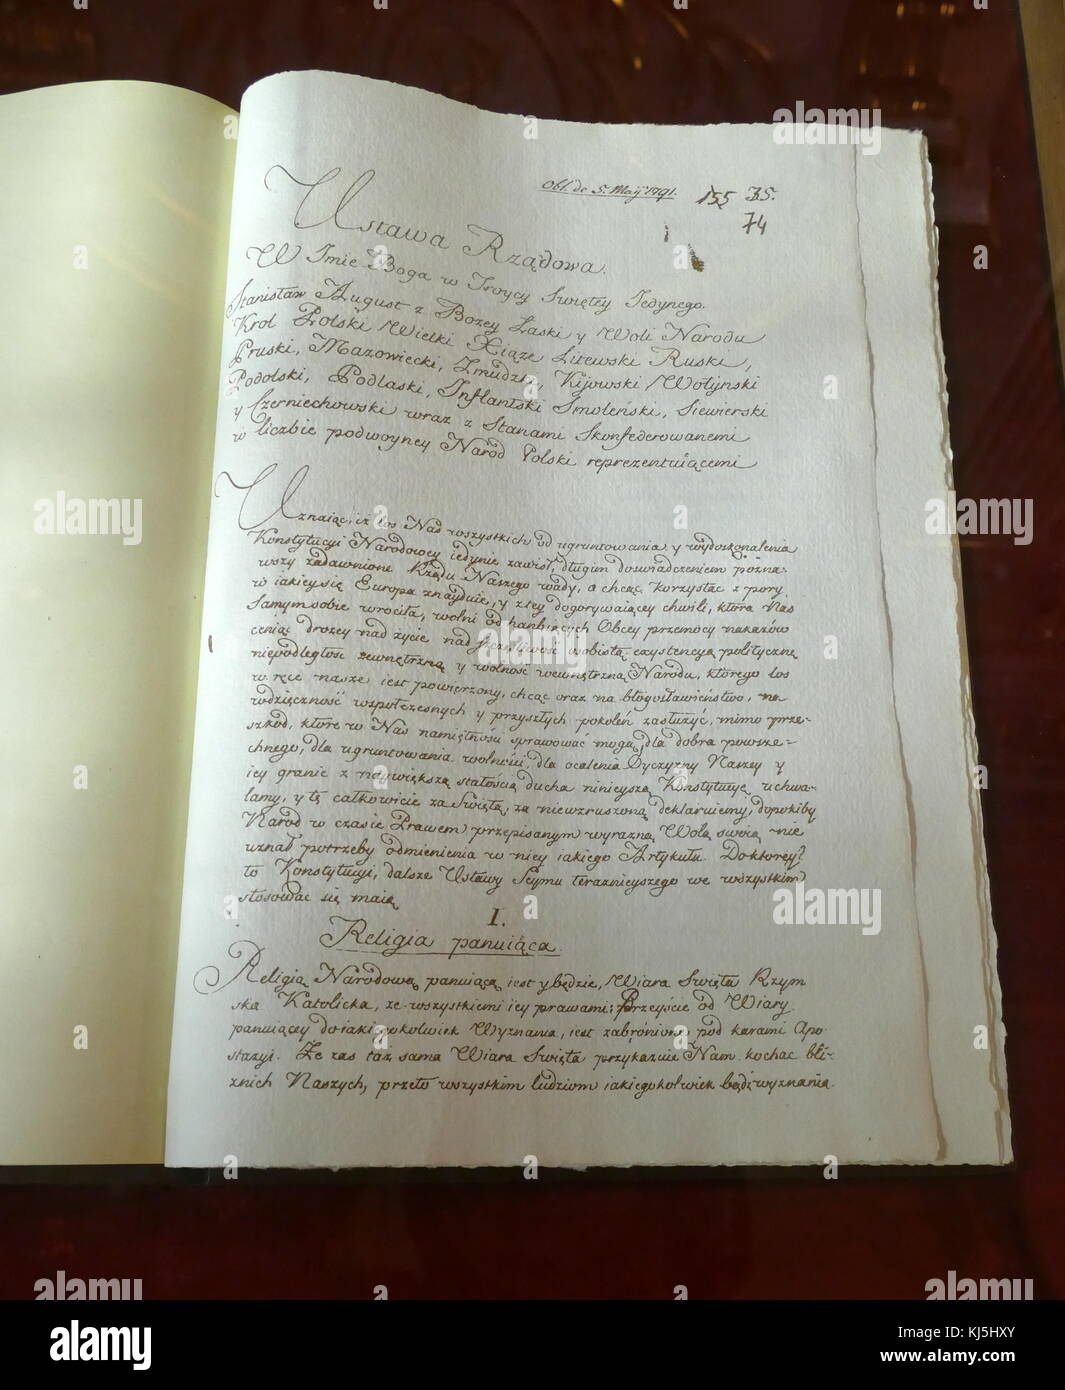 Obl. de 5. Maij 1791. 155 35.
74
Ustawa Rządowa.
W Imie Boga w Troycy Swiętey Jedynego.
Stanisław August z Bozey Łaski y Woli Narodu
Krol Polski Wielki Xiąze Litewski Ruski,
Pruski, Mazowiecki, Zmudzki, Kijowski Wołynski
Podolski, Podlaski, Inflantski Smoleński, Siewierski
y Czerniechowski wraz z Stanami Skonfederowanemi
w liczbie podwoyney Naród Polski reprezentuiącemi
Uznaiąc, iz los Nas wszystkich od ugruntowania y wydoskonalenia
Konstytucyi Narodowey iedynie zawisł, długim doswiadczeniem pozna-
wszy zadawnione Rządu Naszego wady, a chcąc korzystać z pory,
w iakiey się Europa znayduie, y z tey dogorywaiącey chwili, która Nas
samym sobie wrociła, wolni od hanbiących Obcey przemocy nakazów
ceniąc drozey nad życie nad szczęśliwość osobistą exystencyą polityczną
niepodległość zewnętrzną y wolność wewnętrzną Narodu, ktorego los
w ręce nasze iest powierzony, chcąc oraz na błogosławieństwo, na
wdzięczność współczesnych y przyszłych pokoleń zasłużyc, mimo prze-
szkod, które w Nas namiętności sprawować mogą, dla dobra powsze-
chnego, dla ugruntowania wolności, dla ocalenia Oyczyzny Naszey y
iey granic z naywiększą stałością ducha ninieyszą Konstytucyę uchwa-
lamy, y tę całkowicie za Swiętą, za niewzruszoną deklaruiemy, dopokiby
Narod w czasie Prawem przepisanym wyrazną Wolą swoią nie
uznał potrzeby odmienienia w niey iakiego Artykułu. Do ktorey?
to Konstytucyi, dalsze Ustawy Seymu teraznieyszego we wszystkim
stosować się maią
I.
Religia panuiąca.
Religią Narodową panuiącą iest y będzie, Wiara Swięta Rzym
ska Katolicka, ze wszystkiemi iey prawami; Przeyście od Wiary
panuiącey do iakiegokolwiek Wyznania, iest zabronione pod karami Apo
stazyi. Ze zas taż sama Wiara Swięta przykazuie Nam kochac bli-
znich Naszych, przeto wszystkim ludziom iakiegokolwiek bądź wyznania
alamy
alamy stock photo
Image ID: KJ5HXY
www.alamy.com